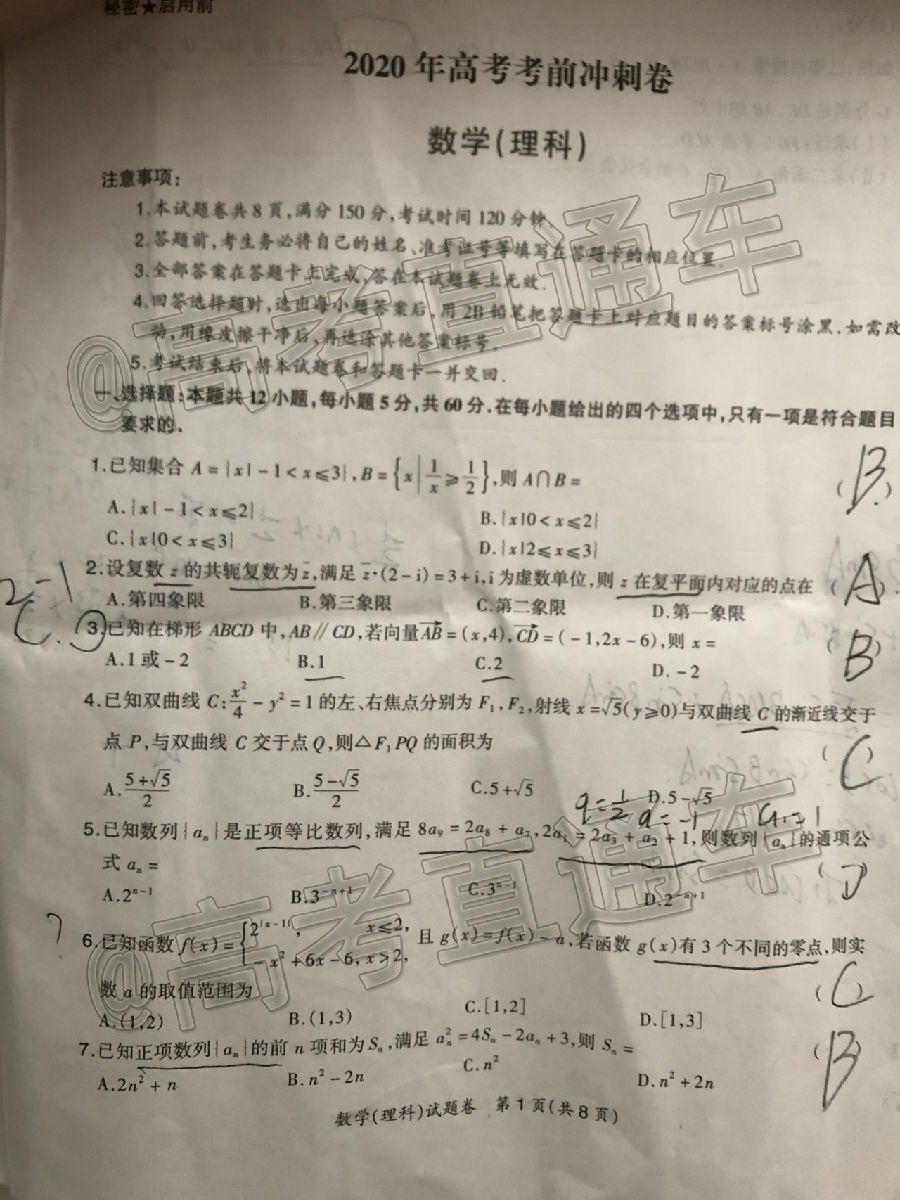 秘密★启用前
2020年高考考前冲刺卷
数学(理科)
注意事项:
1.本试题卷共8页,满分150分,考试时间120分钟.
2.答题前,考生务必将自己的姓名、准考证号等填写在答题卡的相应位置.
3.全部答案在答题卡上完成,答在本试题卷上无效.
4.回答选择题时,选出每小题答案后,用2B铅笔把答题卡上对应题目的答案标号涂黑.如需改
动,用橡皮擦干净后,再选涂其他答案标号.
5.考试结束后,将本试题卷和答题卡一并交回.
一、选择题:本题共12小题,每小题5分,共60分.在每小题给出的四个选项中,只有一项是符合题目
要求的.
1.已知集合 A={x|-1<x≤3},B={x|1/x≥1/2},则 A∩B= (B)
A.{x|-1<x≤2} B.{x|0<x≤2}
C.{x|0<x≤3} D.{x|2≤x≤3}
2.设复数 z 的共轭复数为 z̄,满足 z̄·(2-i)=3+i,i为虚数单位,则 z 在复平面内对应的点在 (A)
A.第四象限 B.第三象限 C.第二象限 D.第一象限
3.已知在梯形 ABCD 中,AB∥CD,若向量AB=(x,4),CD=(-1,2x-6),则 x= (B)
A.1或-2 B.1 C.2 D.-2
4.已知双曲线 C:x²/4-y²=1的左、右焦点分别为 F₁,F₂,射线 x=√5(y≥0)与双曲线 C 的渐近线交于
点 P,与双曲线 C 交于点 Q,则△F₁PQ 的面积为 (C)
A.(5+√5)/2 B.(5-√5)/2 C.5+√5 D.5-√5
q=1/2 a=-1
5.已知数列{aₙ}是正项等比数列,满足 8a₉=2a₈+a₇,2a₄=2a₃+a₂+1,则数列{aₙ}的通项公
式 aₙ=
A.2ⁿ⁻¹ B.3⁻ⁿ⁺¹ C.3ⁿ⁻¹ D.2⁻ⁿ⁺¹
6.已知函数 f(x)={2^|x-1|, x≤2, -x²+6x-6, x>2, 且 g(x)=f(x)-a,若函数 g(x)有3个不同的零点,则实
数 a 的取值范围为 (C)
A.(1,2) B.(1,3) C.[1,2] D.[1,3]
7.已知正项数列{aₙ}的前 n 项和为 Sₙ,满足 aₙ²=4Sₙ-2aₙ+3,则 Sₙ= (B)
A.2n²+n B.n²-2n C.n² D.n²+2n
数学(理科)试题卷 第1页(共8页)
@高考直通车
@高考直通车